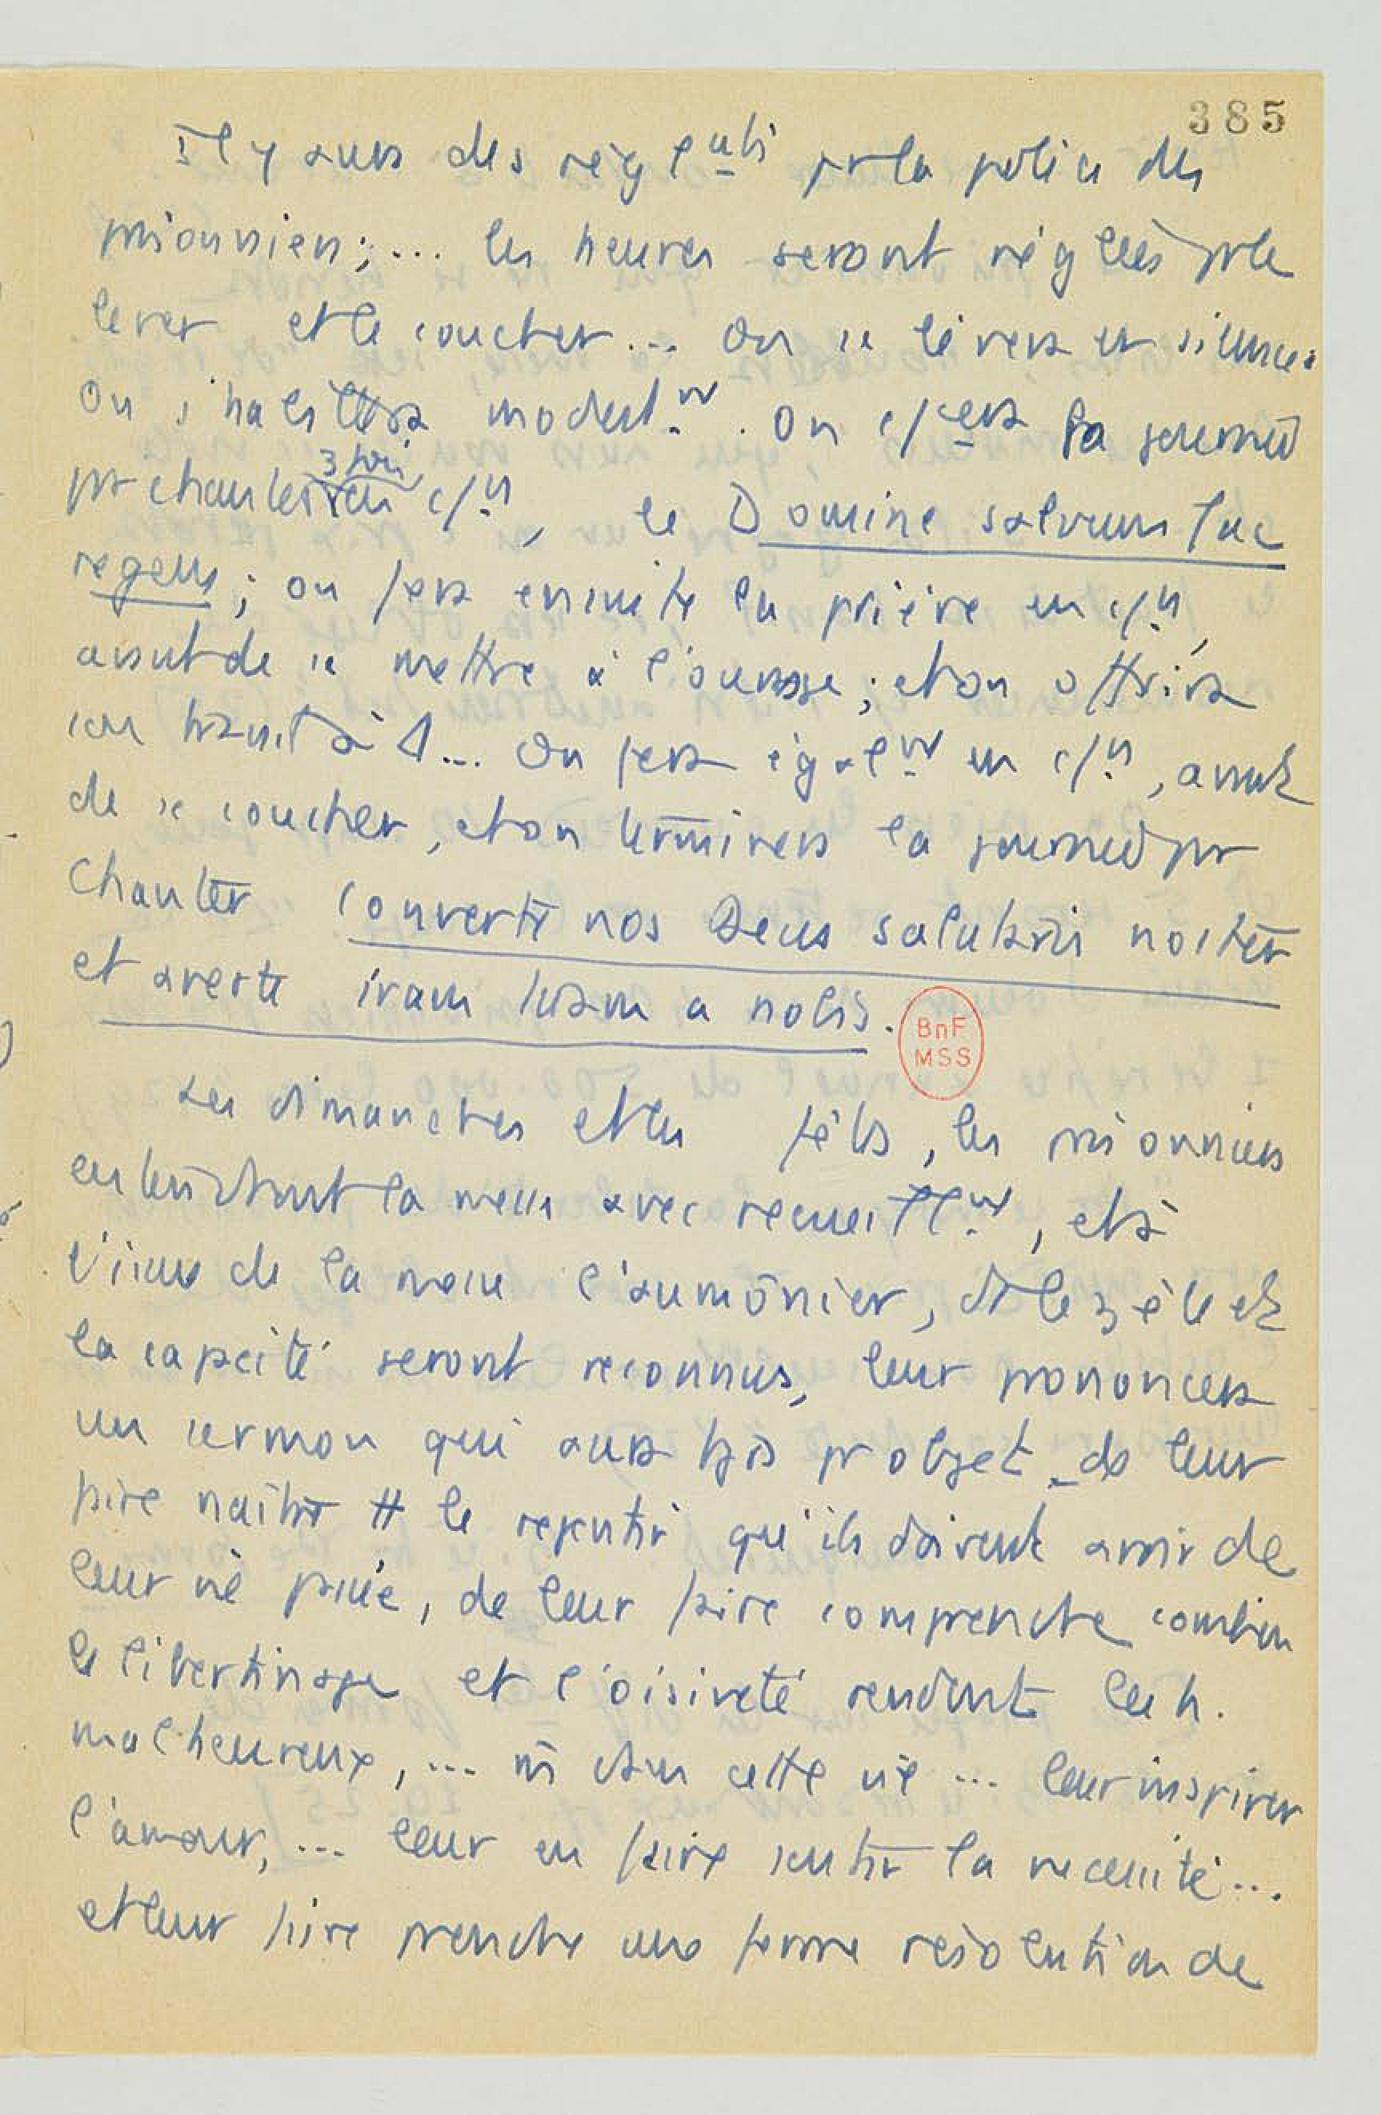 385
Il y aura des règlemts pr la police des
prisonniers ; ... les heures seront réglées pr le
lever et le coucher ... On se lèvera en silence.
On s'habillera modestmt. On c/era la journée
pr chanter 3 fois en c/n, le Domine salvum fac
regem ; on fera ensuite la prière en c/n,
avant de se mettre à l'ouvrage ; et on offrira
son travail à Δ ... On fera égalmt en c/n, avant
de se coucher, et on terminera la journée pr
chanter Converte nos Deus salutaris noster
et averte iram tuam a nobis.
BnF
MSS
Les dimanches et les fêtes, les prisonniers
entendront la messe avec recueillmt, et à
l'issue de la messe l'aumônier, dt le zèle et
la capacité seront reconnus, leur prononcera
un sermon qui aura trois pr objet de leur
faire naître le repentir qu'ils doivent avoir de
leur vie passée, de leur faire comprendre combien
le libertinage et l'oisiveté rendent les h.
malheureux, ... ds cette vie ... leur inspirer
l'amour, ... leur en faire sentir la nécessité ...
et leur faire prendre une ferme résolution de